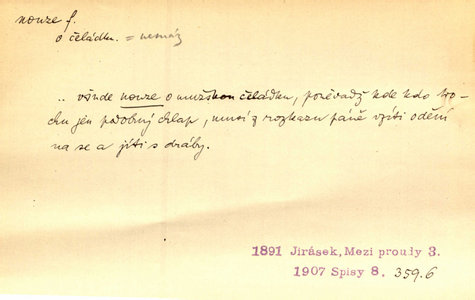 nouze f.
o čeládku. = nesnáz
.. všude nouze o mužskou čeládku, poněvadž kde kdo tro-
chu jen podobný chlap, musí z rozkazu páně vzíti odění
na se a jíti s dráby.
1891 Jirásek, Mezi proudy 3.
1907 Spisy 8. 359.6